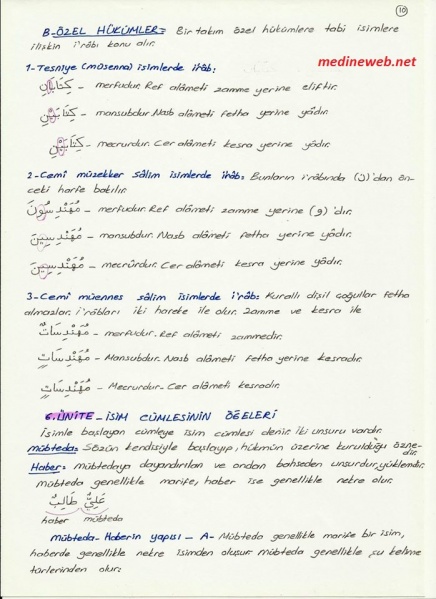 10
B-ÖZEL HÜKÜMLER= Bir takım özel hükümlere tabi isimlere
ilişkin i'râbı konu alır.
medineweb.net
1-Tesniye (müsenna) isimlerde itâb:
كِتَابَانِ - merfudur. Ref alâmeti zamme yerine eliftir.
كِتَابَيْنِ - mansubdur. Nasb alâmeti fetha yerine yâdır.
كِتَابَيْنِ - mecrurdur. Cer alâmeti kesra yerine yâdır.
2-Cemi müzekker sâlim isimlerde itâb: Bunların i'râbında (ن)'dan ön-
ceki harfe bakılır.
مُهَنْدِسُونَ - merfudur. Ref alâmeti zamme yerine (و)'dır.
مُهَنْدِسِينَ - mansubdur. Nasb alâmeti fetha yerine yâdır.
مُهَنْدِسِينَ - mecrûrdur. Cer alâmeti kesra yerine yâdır.
3-Cemi müennes sâlim isimlerde i'râb: Kurallı dişil çoğullar fetha
almazlar. i'râbları iki hareke ile olur. Zamme ve kesra ile
مُهَنْدِسَاتٌ - merfudur. Ref alâmeti zammedir.
مُهَنْدِسَاتٍ - Mansubdur. Nasb alâmeti fetha yerine kesradır.
مُهَنْدِسَاتٍ - Mecrurdur - Cer alâmeti kesradır.
6.ÜNİTE-İSİM CÜMLESİNİN ÖĞELERİ
İsimle başlayan cümleye isim cümlesi denir. İki unsuru vardır.
Mübteda= Sözün kendisiyle başlayıp, hükmün üzerine kurulduğu özne-
dir.
Haber: mübtedaya dayandırılan ve ondan bahseden unsurdur, yüklemdir.
mübteda genellikle marife, haber ise genellikle nekre olur.
عَلِيٌّ طَالِبٌ
haber mübteda
Mübteda-Haberin yapısı - A- Mübteda genellikle marife bir isim,
haberde genellikle nekre isimden oluşur. Mübteda genellikle şu kelime
türlerinden olur: